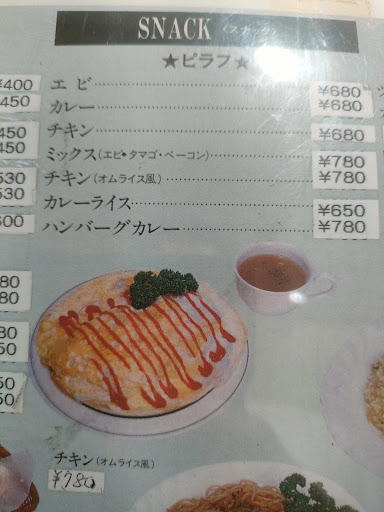 SNACK 〈スナック〉
★ピラフ★
¥400
450
エビ ¥680
カレー ¥680
450
450
チキン ¥680
ミックス(エビ•タマゴ・ベーコン) ¥780
530
530
チキン(オムライス風) ¥780
カレーライス ¥650
600
ハンバーグカレー ¥780
80
80
80
50
50
50
チキン(オムライス風)
¥780